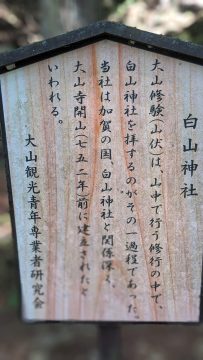 白山神社
大山修験(山伏)は、山中で行う修行の中で、
白山神社を拝するのがその一過程であった。
当社は加賀の国、白山神社と関係深く、
大山寺開山(七五二年前に建立されたと
いわれる。
大山観光青年専業者研究会